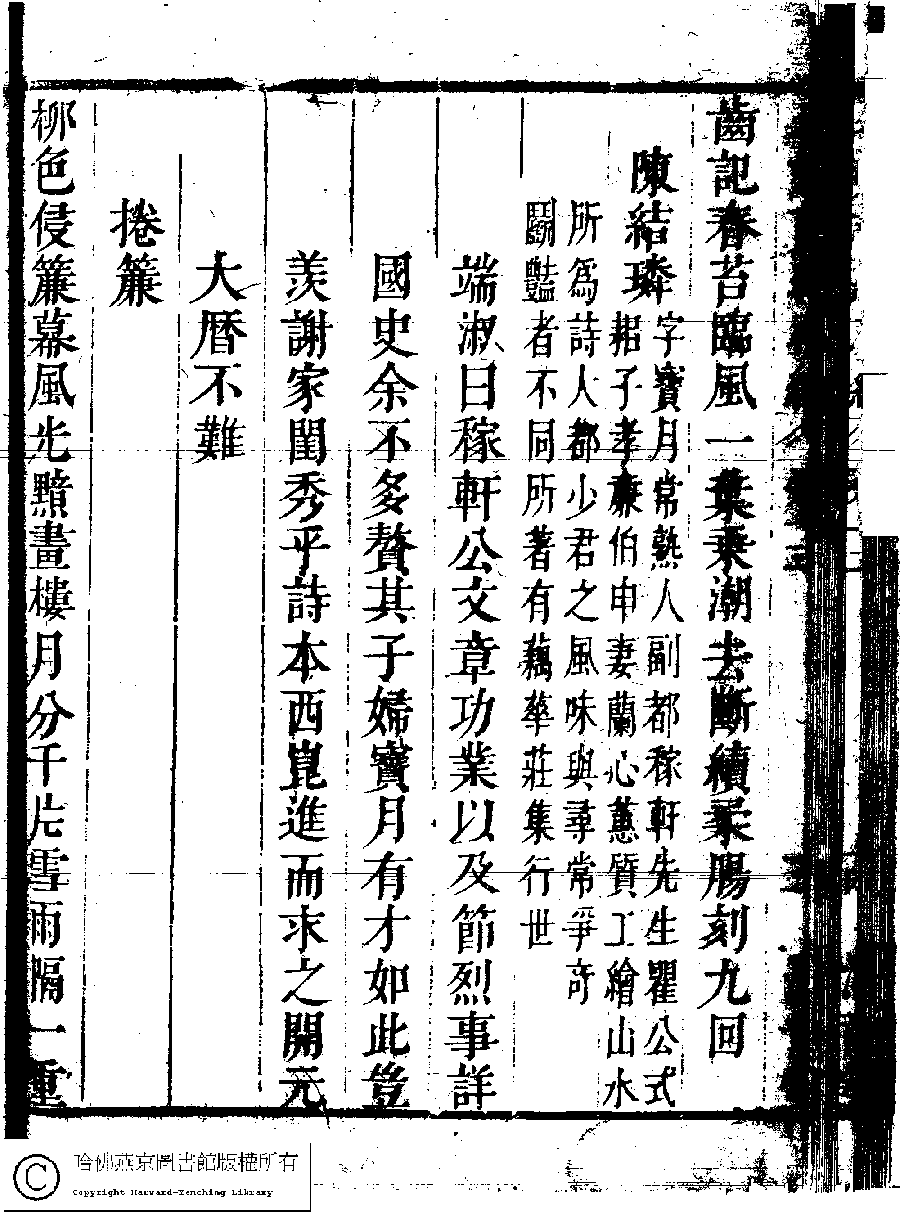 齒記春苔臨風一葉乘潮去斷續柔腸刻九回
陳結璘
字寶月常熟人副都稼軒先生瞿公式
耜子孝廉伯申妻蘭心蕙質工繪山水
所為詩人都少君之風味與尋常爭奇
鬬豔者不同所著有藕華莊集行世
端淑曰稼軒公文章功業以及節烈事詳
國史余不多贅其子婦寶月有才如此豈
羨謝家閨秀乎詩本西崑進而求之開元
大曆不難
捲簾
柳色侵簾幕風光黯畫樓月分千片雪雨隔一重
哈佛燕京圖書館版權所有
Copyright Harvard-Yenching Library